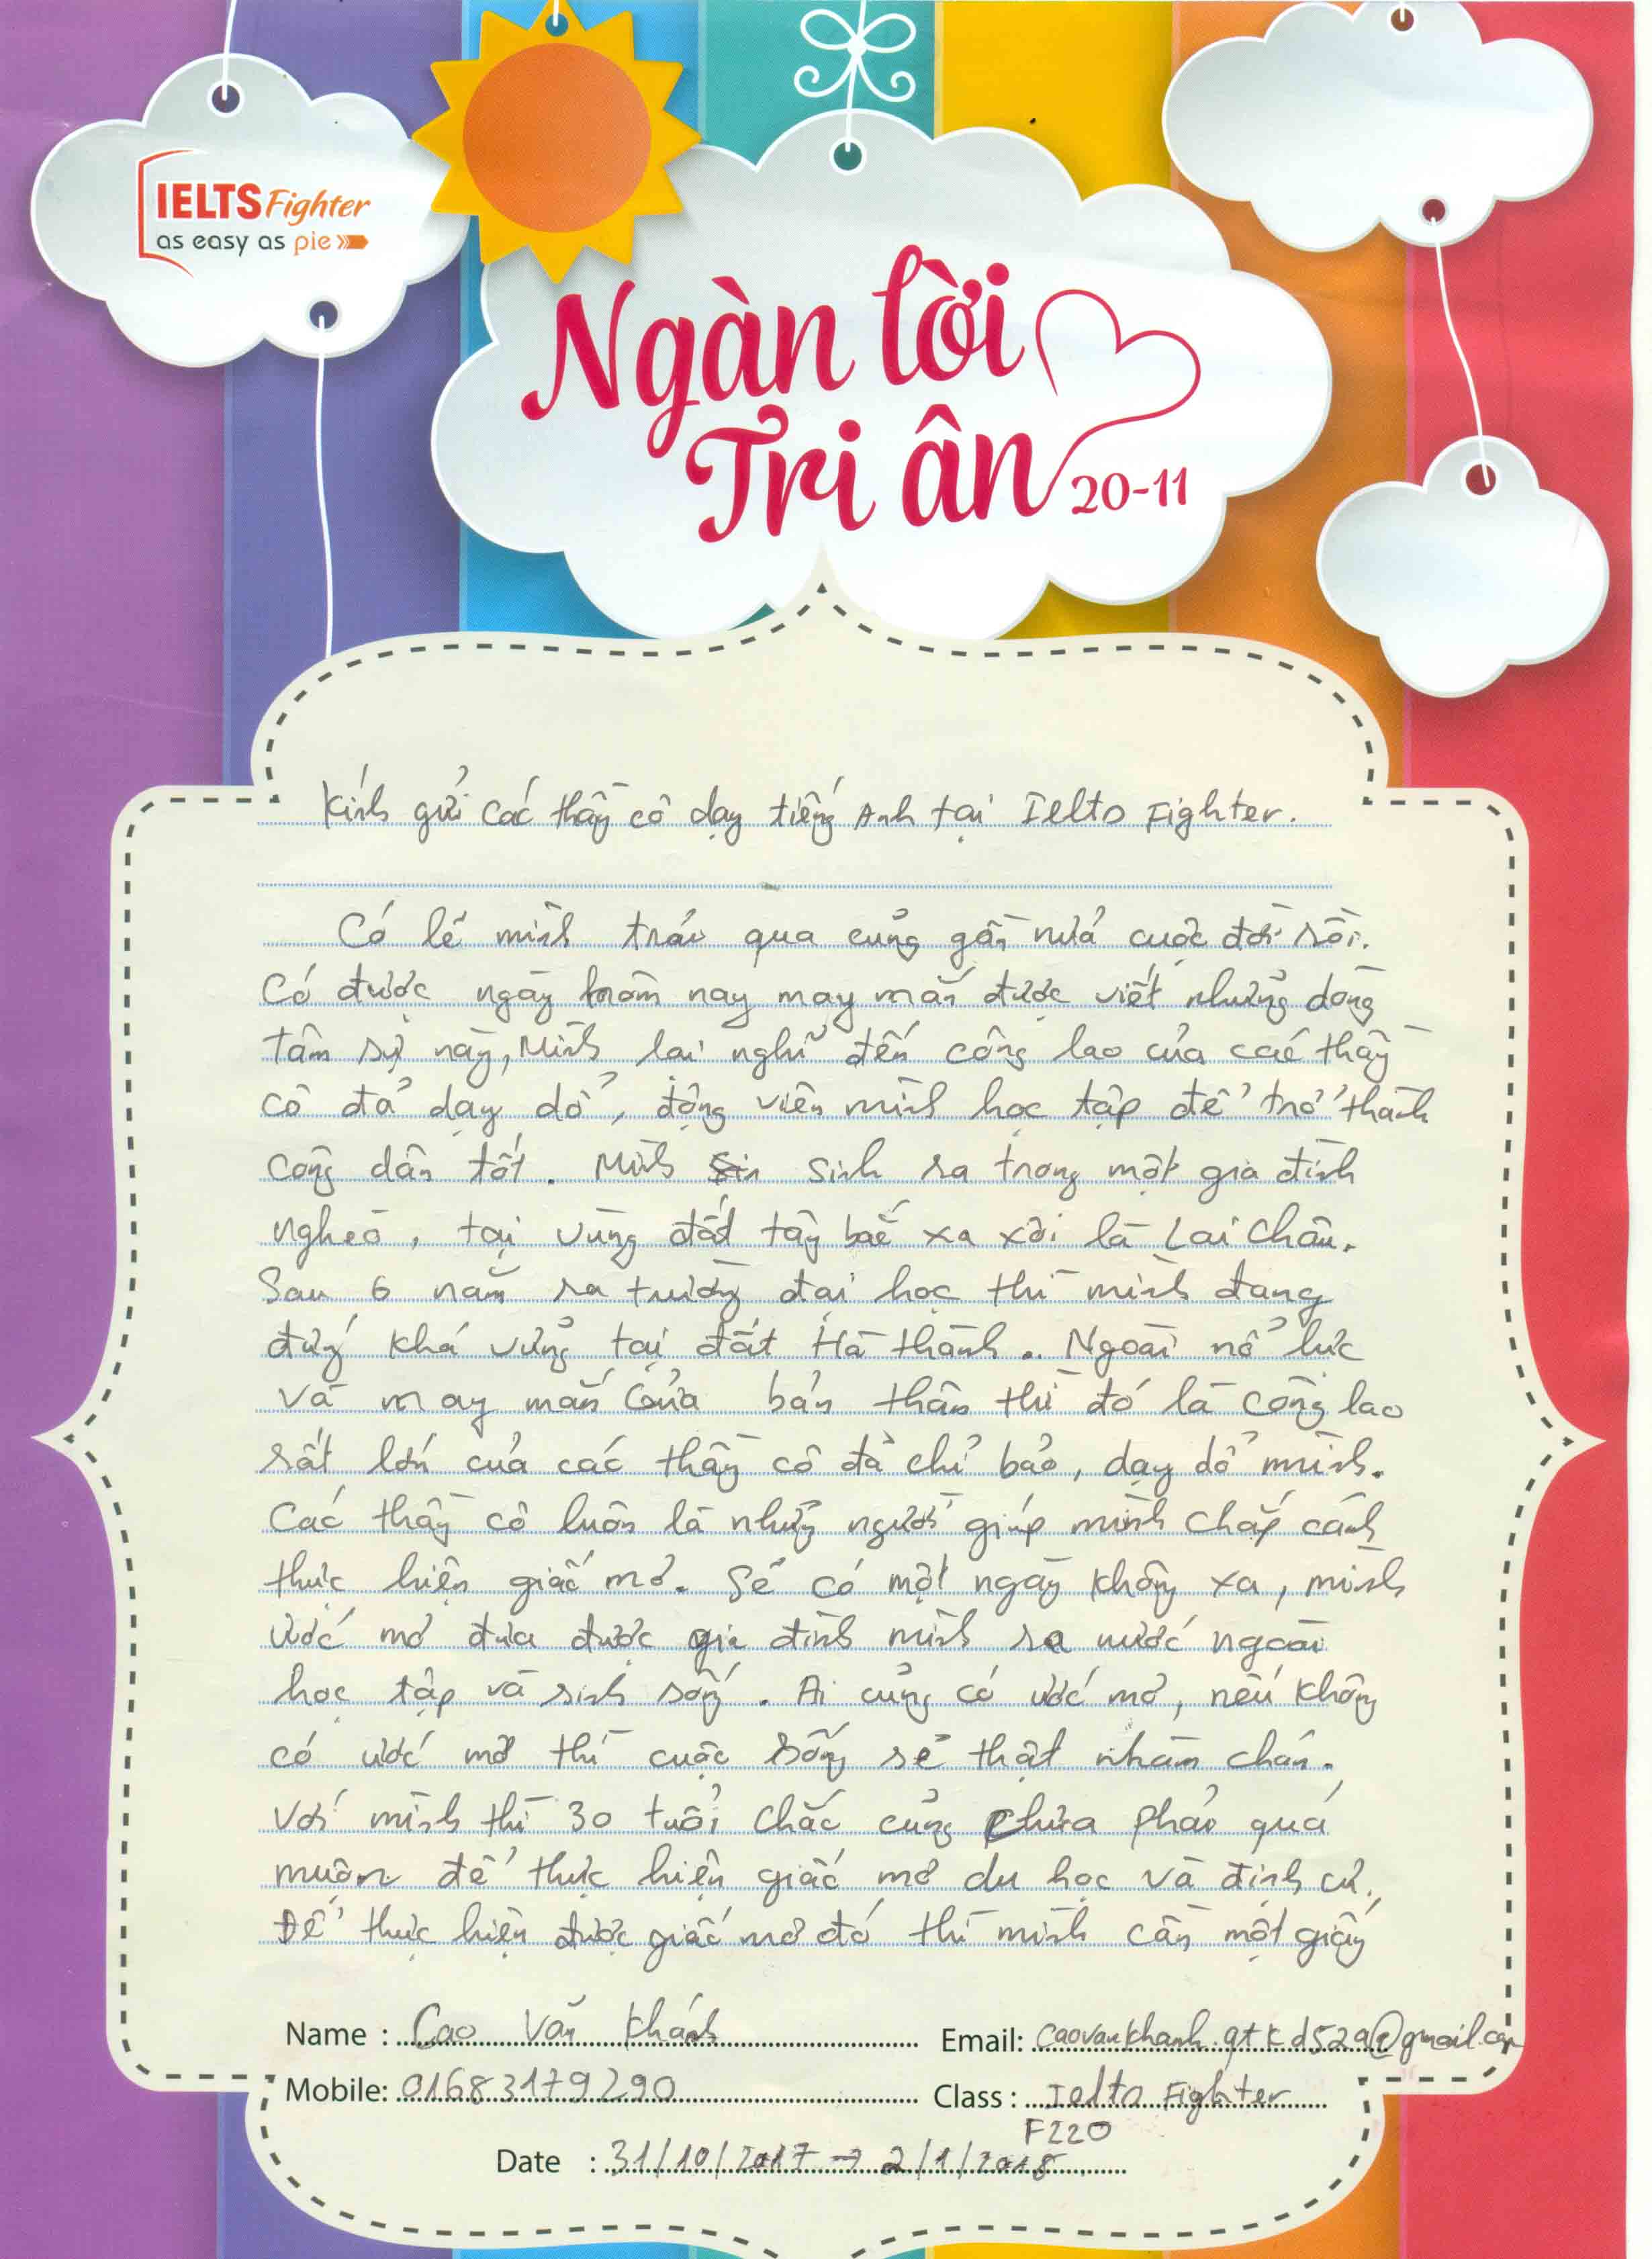 IELTS Fighter
as easy as pie
Ngàn lời
Tri ân
20-11
Kính gửi các thầy cô dạy tiếng Anh tại Ielts Fighter.
Có lẽ mình trải qua cũng gần nửa cuộc đời rồi.
Có được ngày hôm nay may mắn được viết những dòng
tâm sự này, Mình lại nghĩ đến công lao của các thầy
cô đã dạy dỗ, động viên mình học tập để trở thành
công dân tốt. Mình sinh ra trong một gia đình
nghèo, tại vùng đất tây bắc xa xôi là Lai Châu.
Sau 6 năm ra trường đại học thì mình đang
đứng khá vững tại đất Hà thành.. Ngoài nỗ lực
và may mắn của bản thân thì đó là công lao
rất lớn của các thầy cô đã chỉ bảo, dạy dỗ mình.
Các thầy cô luôn là những người giúp mình chắp cánh
thực hiện giấc mơ. Sẽ có một ngày không xa, mình
ước mơ đưa được gia đình mình ra nước ngoài
học tập và sinh sống. Ai cũng có ước mơ, nếu không
có ước mơ thì cuộc sống sẽ thật nhàm chán.
Với mình thì 30 tuổi chắc cũng chưa phải quá
muộn để thực hiện giấc mơ du học và định cư.
Để thực hiện được giấc mơ đó thì mình cần một giấy
Name : Cao Văn Khánh
Email: caovankhanh.qtkd52a@gmail.com
Mobile: 01683179290
Class : Ielts Fighter
F220
Date : 31/10/2017 → 2/1/2018